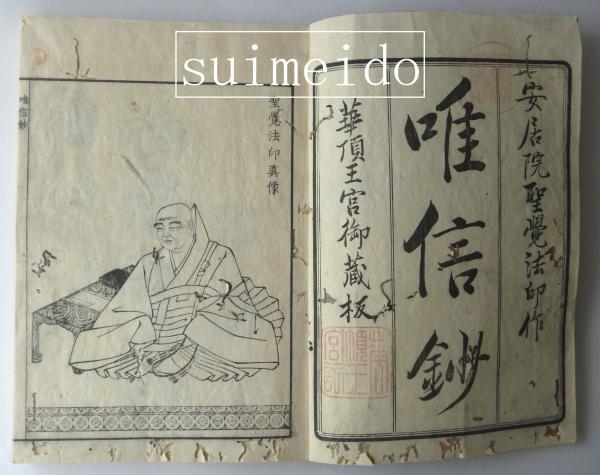 suimeido
安居院聖覺法印作
唯信鈔
華頂王宮御藏板
聖覺法印真像
唯信鈔